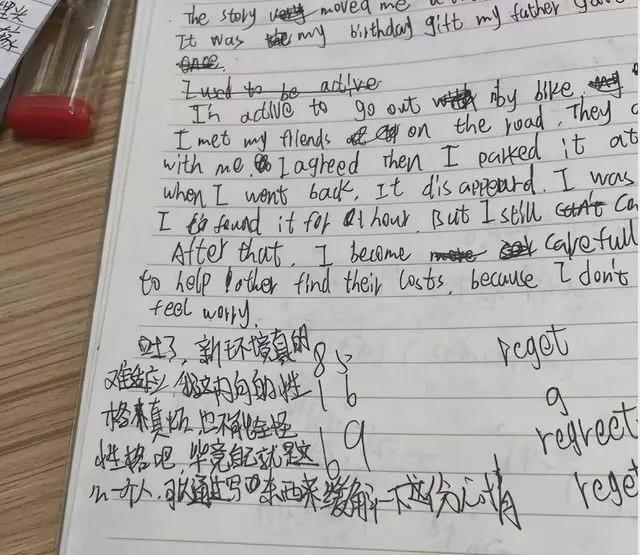 The story moved me a
It was my birthday gift my father gave
once.
I used to be active
I'm active to go out by bike.
I met my friends on the road. They
with me. I agreed then I parked it at
when I went back, It disappeard. I was
I found it for 1 hour. But I still can't
After that, I become carefull
to help other find their losts, because I don't
feel worry.
吐了，新环境真的
难适应，我这内向的性
格来真烦，也不能全怪
性格吧，毕竟自己就是这
么一个人，可以通过写口东西来缓解一下这份心情
85
16
69
reget
g
regrect
reget